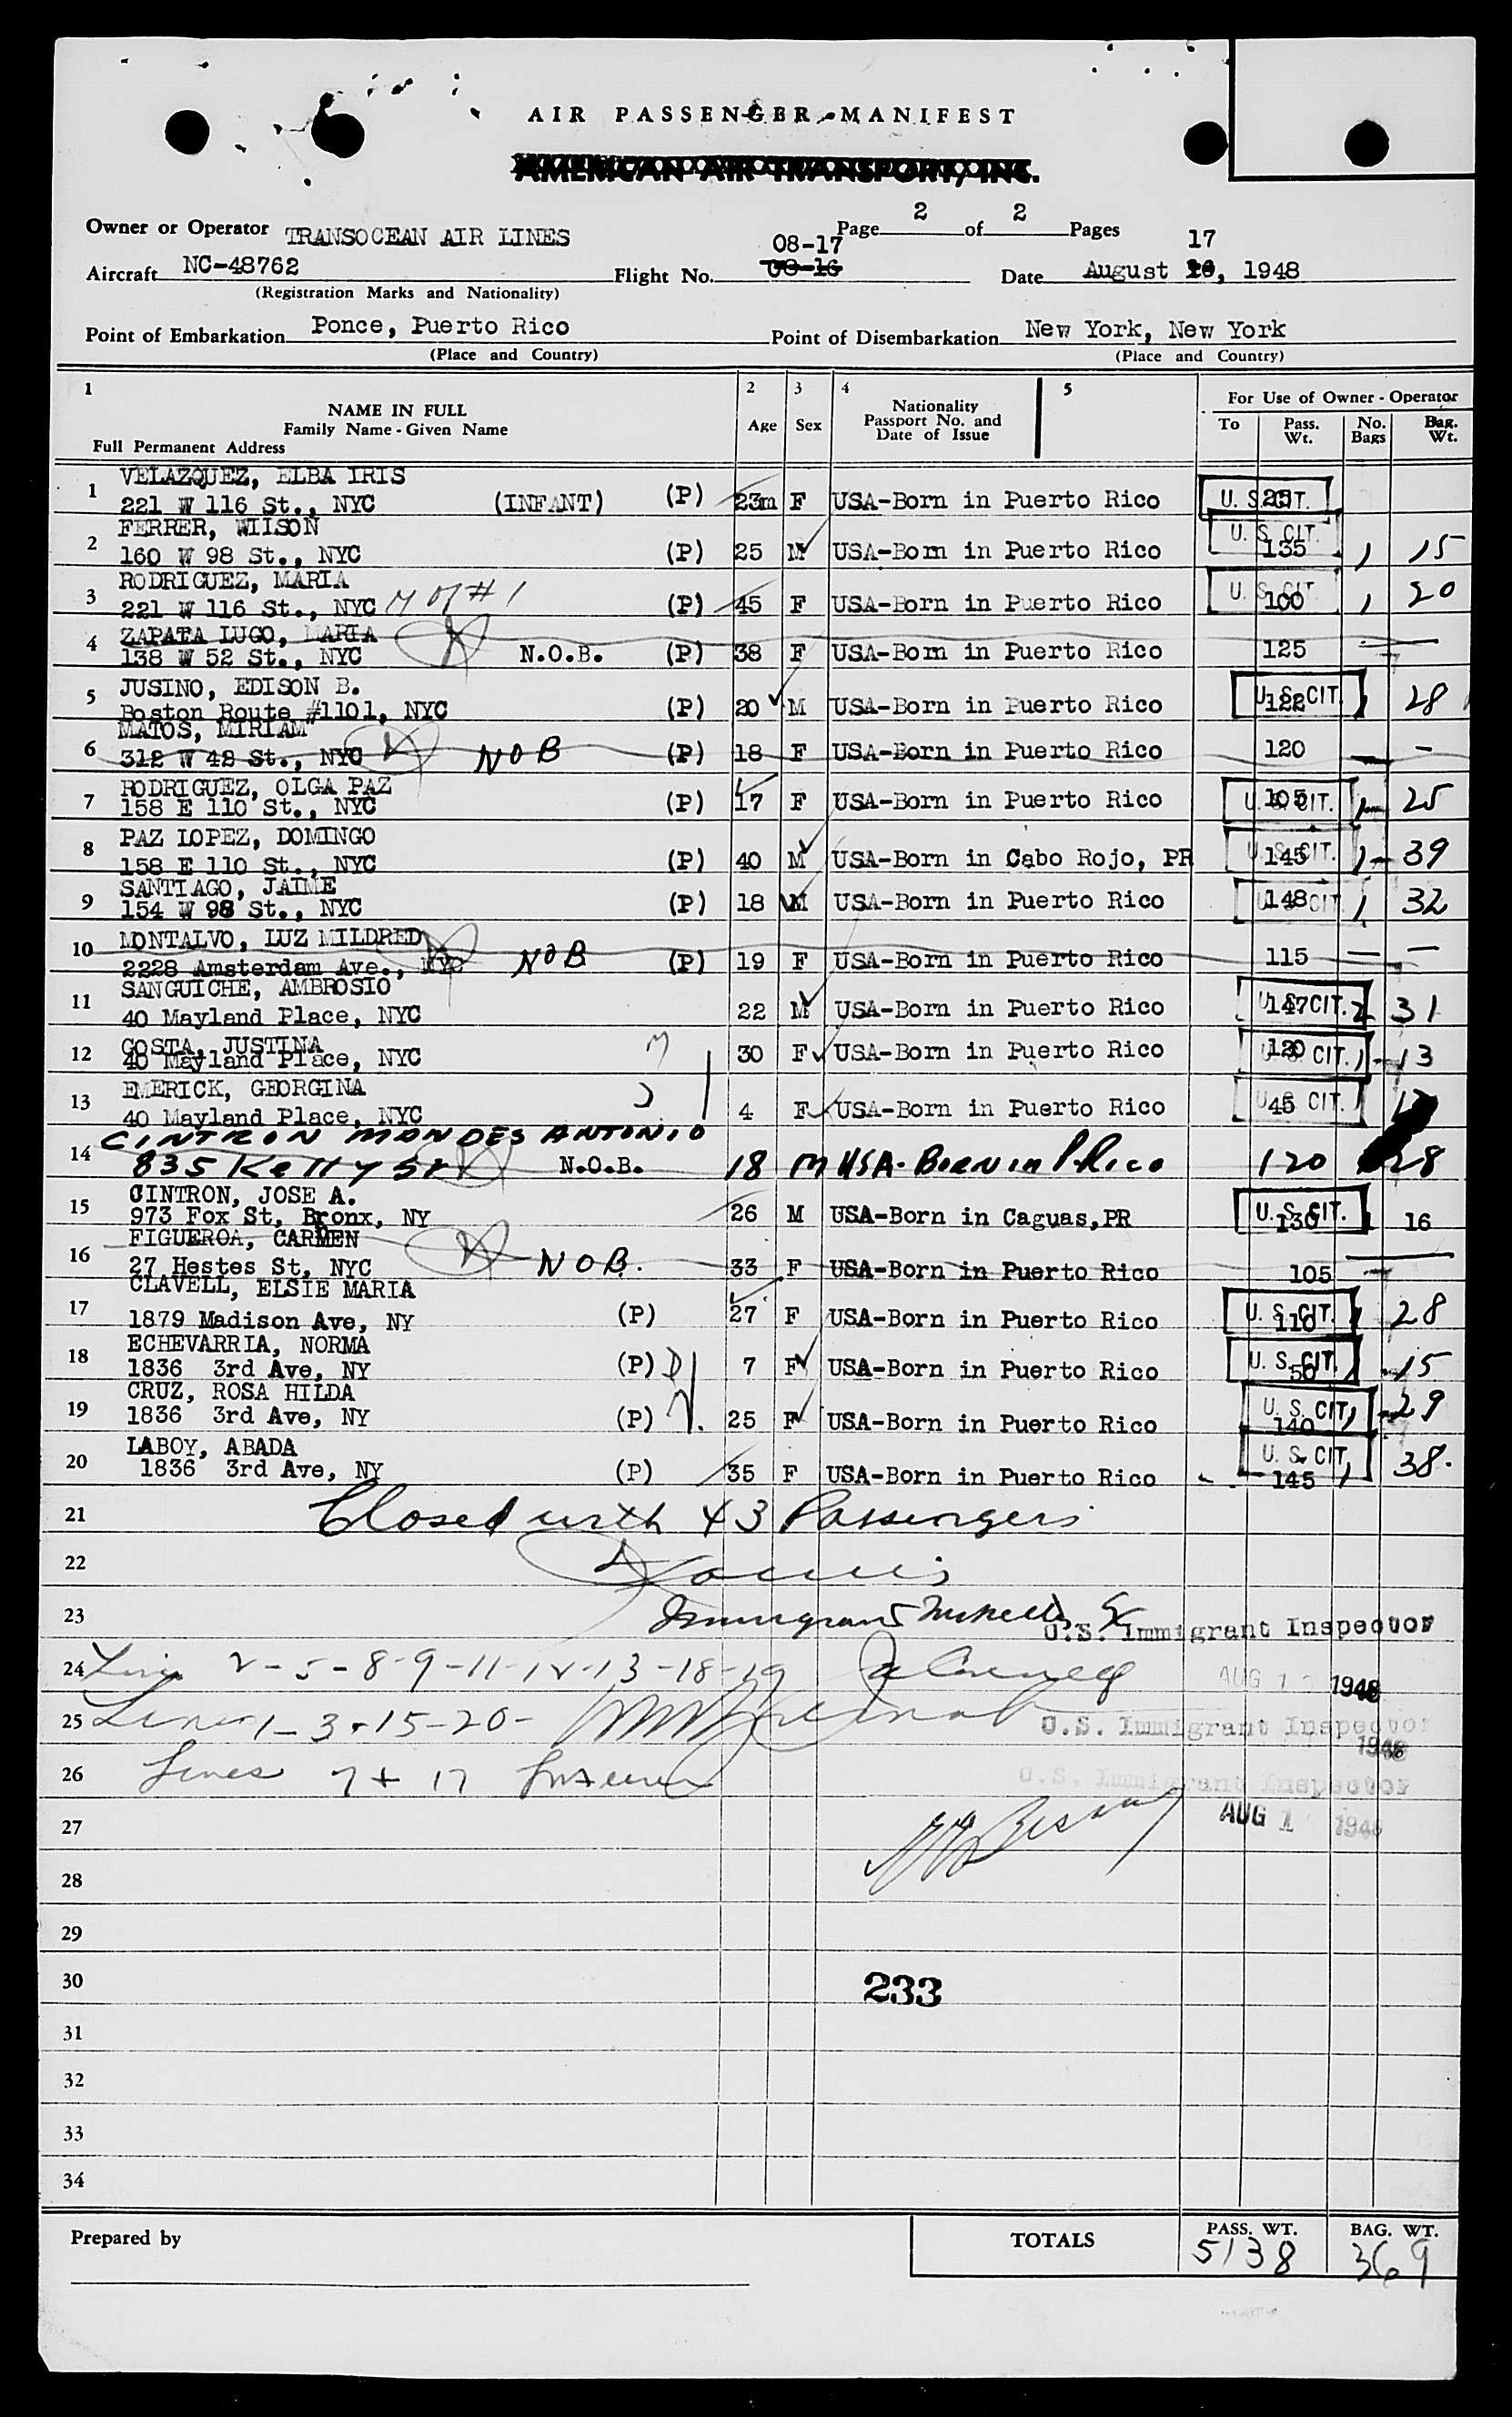 AIR PASSENGER MANIFEST
AMERICAN AIR TRANSPORT, INC.
Owner or Operator TRANSOCEAN AIR LINES Page 2 of 2 Pages
Aircraft NC-48762 Flight No. 08-17 08-16 Date August 17, 1948
(Registration Marks and Nationality)
Point of Embarkation Ponce, Puerto Rico Point of Disembarkation New York, New York
(Place and Country) (Place and Country)
1 2 3 4 5
NAME IN FULL
Family Name - Given Name
Full Permanent Address
Age Sex
Nationality
Passport No. and
Date of Issue
For Use of Owner - Operator
To Pass. Wt. No. Bags Bag. Wt.
VELAZQUEZ, ELBA IRIS
1 221 W 116 St., NYC (INFANT) (P) 23m F USA-Born in Puerto Rico U. S. CIT. 25
FERRER, WILSON
2 160 W 98 St., NYC (P) 25 M USA-Born in Puerto Rico U. S. CIT. 135 1 15
RODRIGUEZ, MARIA
3 221 W 116 St., NYC M of #1 (P) 45 F USA-Born in Puerto Rico U. S. CIT. 100 1 20
ZAPATA LUGO, MARIA
4 138 W 52 St., NYC N.O.B. (P) 38 F USA-Born in Puerto Rico 125 — —
JUSINO, EDISON B.
5 Boston Route #1101, NYC (P) 20 M USA-Born in Puerto Rico U. S. CIT. 122 1 28
MATOS, MIRIAM
6 312 W 48 St., NYC NOB (P) 18 F USA-Born in Puerto Rico 120 — -
RODRIGUEZ, OLGA PAZ
7 158 E 110 St., NYC (P) 17 F USA-Born in Puerto Rico U. S. CIT. 105 1- 25
PAZ LOPEZ, DOMINGO
8 158 E 110 St., NYC (P) 40 M USA-Born in Cabo Rojo, PR U. S. CIT. 145 1- 39
SANTIAGO, JAIME
9 154 W 98 St., NYC (P) 18 M USA-Born in Puerto Rico U. S. CIT. 148 1 32
MONTALVO, LUZ MILDRED
10 2228 Amsterdam Ave., NYC NOB (P) 19 F USA-Born in Puerto Rico 115 — —
SANGUICHE, AMBROSIO
11 40 Mayland Place, NYC 22 M USA-Born in Puerto Rico U. S. CIT. 147 2 31
COSTA, JUSTINA
12 40 Mayland Place, NYC M 30 F USA-Born in Puerto Rico U. S. CIT. 120 1- 13
EMERICK, GEORGINA
13 40 Mayland Place, NYC 4 F USA-Born in Puerto Rico U. S. CIT. 45
CINTRON MONDES ANTONIO
14 835 Kelly St N.O.B. 18 M USA-Born in P Rico 120 28
CINTRON, JOSE A.
15 973 Fox St, Bronx, NY 26 M USA-Born in Caguas,PR U. S. CIT. 130 1 16
FIGUEROA, CARMEN
16 27 Hestes St, NYC NOB. 33 F USA-Born in Puerto Rico 105 —
CLAVELL, ELSIE MARIA
17 1879 Madison Ave, NY (P) 27 F USA-Born in Puerto Rico U. S. CIT. 110 1 28
ECHEVARRIA, NORMA
18 1836 3rd Ave, NY (P) D 7 F USA-Born in Puerto Rico U. S. CIT. 50 1 15
CRUZ, ROSA HILDA
19 1836 3rd Ave, NY (P) M. 25 F USA-Born in Puerto Rico U. S. CIT. 140 1 29
LABOY, ABADA
20 1836 3rd Ave, NY (P) 35 F USA-Born in Puerto Rico U. S. CIT. 145 1 38.
21 Closed with 43 Passengers
22
23 Immigrant U.S. Immigrant Inspector
24 Lines 2-5-8-9-11-12-13-18-19 AUG 1 1948
25 Lines 1-3-15-20- U.S. Immigrant Inspector
1948
26 Lines 7 + 17 U.S. Immigrant Inspector
27 AUG 1 1948
28
29
30 233
31
32
33
34
Prepared by TOTALS PASS. WT. 5138 BAG. WT. 369